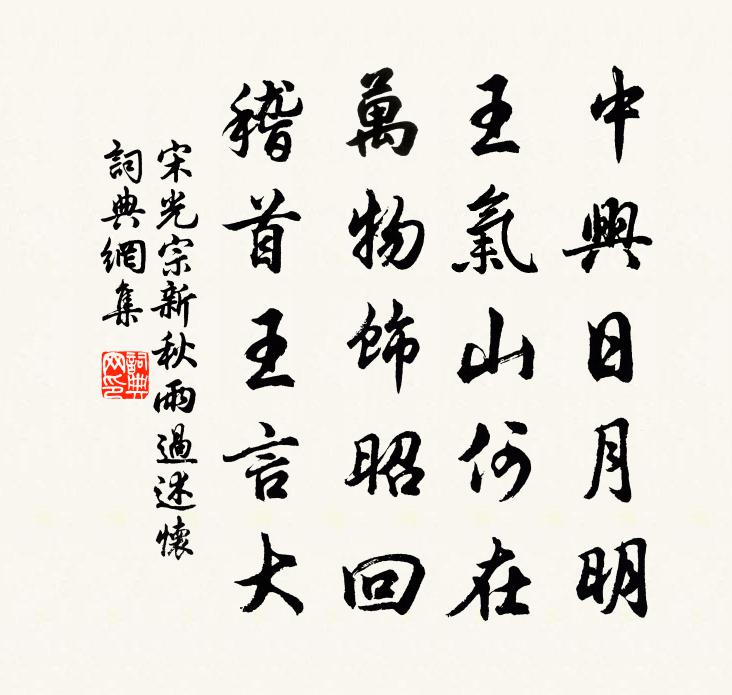 中興日月明
王氣山何在
萬物飾昭回
稽首王言大
宋光宗新秋雨過述懷
詞典網集
詞典
网印